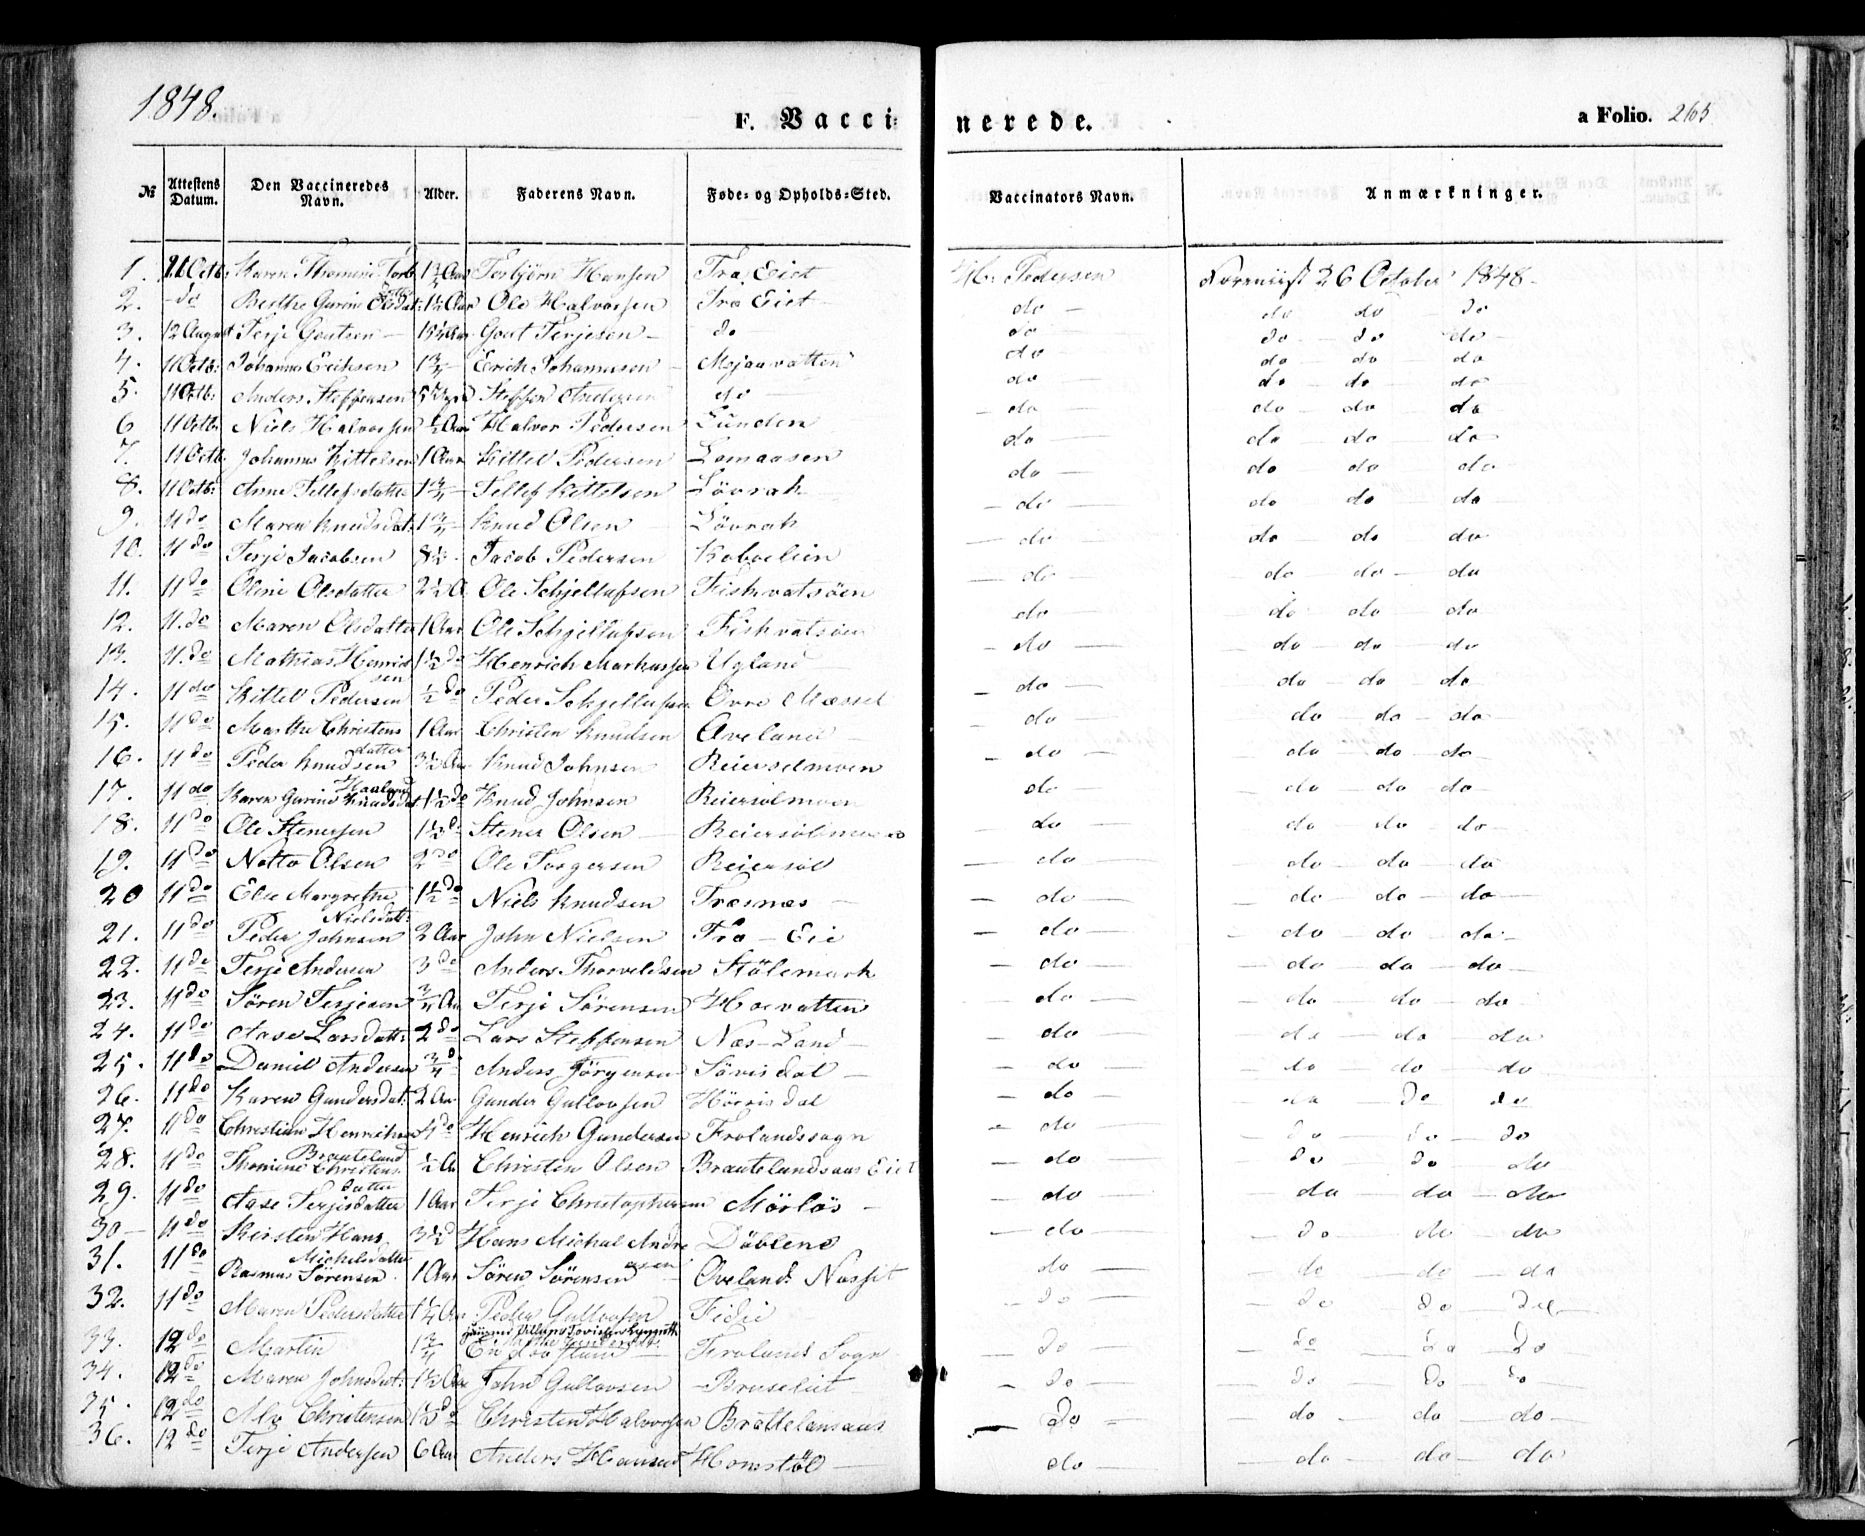 1848.
F. Vaccinerede.
a Folio. 265
№ Attestens Datum. Den Vaccineredes Navn. Alder. Faderens Navn. Føde- og Opholds-Sted. Vaccinators Navn. Anmærkninger.
1. 11 Octb: Karen Thomine Torb Torbjørn Hansen Fra Eiet H. Pedersen 26 October 1848
2. do Berthe Gurine Olsdat: 1½ Aar Ole Halvorsen Fra Eiet do do do do
3. 12 August Terje Goutsen Gout Terjesen do do do do do
4. 11 Octb: Johannes Eriksen 1¾ Erich Johannesen Mjaavatten do do do do
5. 11 Octb: Anders Steffensen Steffen Andersen do do do do do
6 11 Octb: Niels Halvorsen ½ Aar Halvor Pedersen Lunden do do do do
7. 11 Octb. Johannes Kittelsen 1 Aar Kittel Pedersen Lomaasen do do do do
8. 11 Octb: Anne Tellefsdatter 1¾ Tellef Kittelsen Løvrak do do do do
9. 11 do Maren Knudsdat: 1¾ Knud Olsen Løvrak do do do do
10. 11 do Terje Jacobsen 8½ Jacob Pedersen do do do do
11. 11 do Oline Olsdatter 2½ A Ole Schjellufsen Fiskvatsøen do do do do
12. 11. do Maren Olsdatter 1 Aar Ole Schjellufsen Fiskvatsøen do do do do
13. 11. do Mathias Henrik
sen 1½ do Henrich Markussen Ugland do do do do
14. 11 do Kittel Pedersen ½ do Peder Schjellufsen Øvre Mæssel do do do do
15. 11 do Marthe Christens
datter 1 Aar Christen Knudsen Aveland do do do do
16. 11 do Peder Knudsen 3½ Aar Knud Johnsen Reierselmoen do do do do
17. 11 do Karen Gurine Knudsdat 1½ do Knud Johnsen Reiersølmoen do do do do
18. 11 do Ole Stenersen 1½ d. Stener Olsen Reiersølmoen do do do do
19. 11 do Notto Olsen 2 do Ole Torgersen Reiersøl do do do do
20 11 do Else Margrethe
Nielsdatt: 1½ do Niels Knudsen Fræsnæs do do do do
21. 11 do Peder Johnsen 2 Aar John Nielsen Fro Eie do do do do
22. 11 do Terje Andersen 3 do Anders Thorveldsen Stølemark do do do do
23. 11 do Søren Terjesen ¾ Aar Terje Sørensen Hoevatten do do do do
24. 11 do Aase Larsdatt: 2 do Lars Steffensen Næs-Land do do do do
25. 11 do Daniel Andersen ¾ d. Anders Jörgensen do do do do
26. 11 do Karen Gundersdat: 2 Aar Gunder Gullovsen Hørrisdal do do do do
27. 11 do Christian Henriksen Henrich Gundersen Frolandssogn do do do do
28. 11 do Brauteland
Thomine Christens
datter ½ Aar Christen Olsen Brautelandsaas Eiet do do do do
29. 11 do Aase Terjesdatter 1 Aar Terje Christophersen Mørløs do do do do
30 11 do Kirsten Hans
Michelsdatter 3½ d Hans Michal Andre
asen Dablene do do do do
31. 11 do Rasmus Sørensen 1 Aar Søren Sørensen Oveland do do do do
32. 11 do Maren Pedersdatter 1¼ Aar Peder Gullovsen Fidie do do do
33. 12 do Martin 1¾ Frolands Sogn do do do do
34. 12 do Maren Johnsdat: 1½ Aar John Gullovsen Bruseliet do do do do
35. 12 do Christensen 1½ do Christen Halvorsen Brattelansaas do do do do
36. 12 do Terje Andersen 6 Aar Anders Hansen Homstøl do do do do